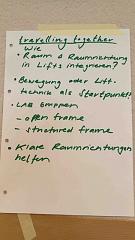 travelling together
Wie
• Raum & Raumnutzung
in Lifts integrieren?
• Bewegung oder Lift-
technik als Startpunkt?
• LAB Gruppen
- open frame
- structured frame
• Klare Raumrichtungen
helfen